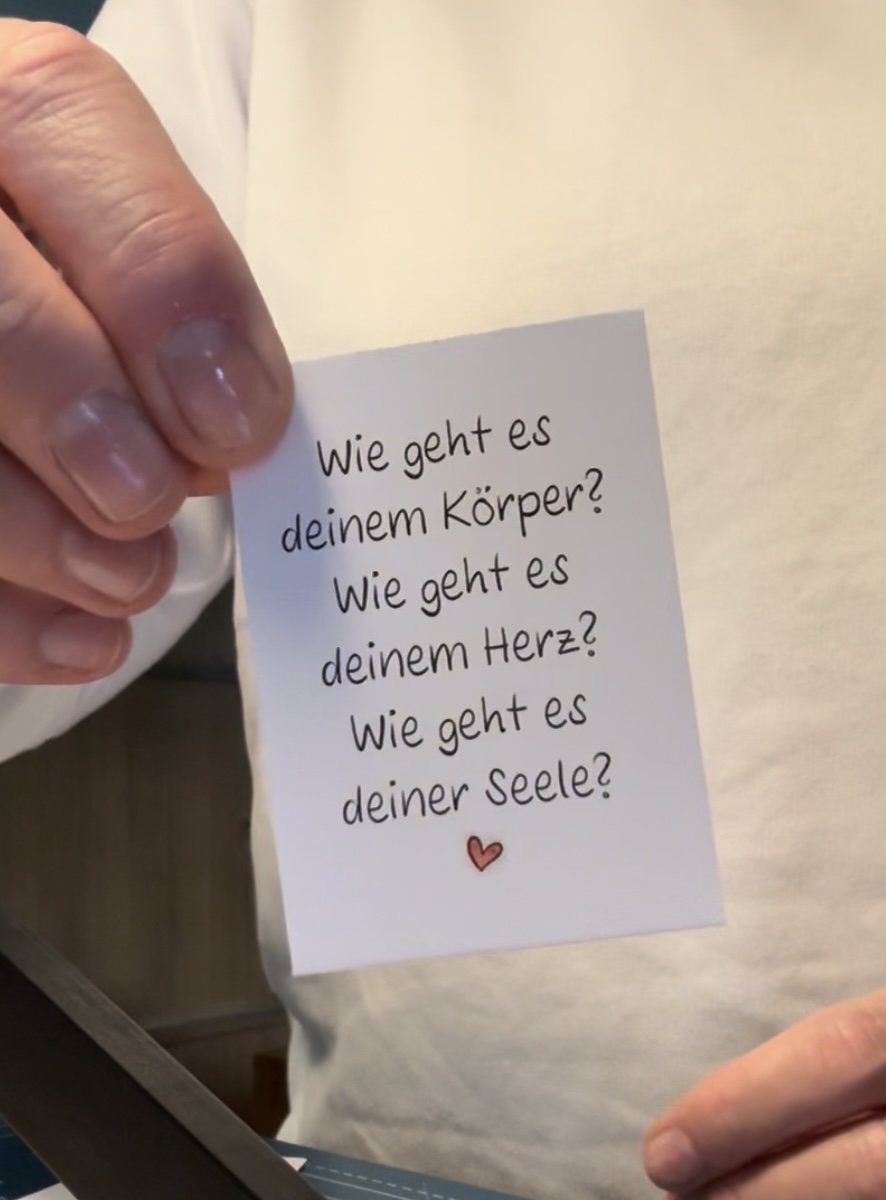 Wie geht es
deinem Körper?
Wie geht es
deinem Herz?
Wie geht es
deiner Seele?